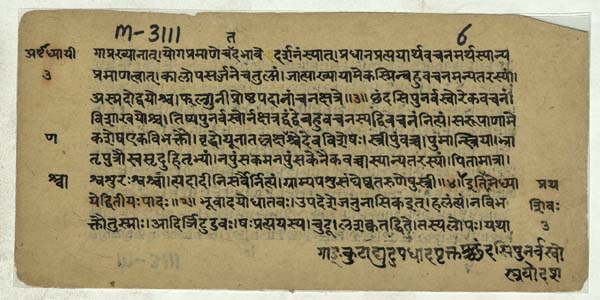 M-3111 त ६
अष्टाध्यायी गाप्रख्यानात्। योगप्रमाणे च तदभावे दर्शनं स्यात्। प्रधानप्रत्ययार्थवचनमर्थस्यान्य
३ प्रमाणत्वात्। कालोपसर्जने च तुल्यं। जात्याख्यायामेकस्मिन्बहुवचनमन्यतरस्यां।
अस्मदो द्वयोश्च। फल्गुनीप्रोष्ठपदानां च नक्षत्रे॥३॥ छंदसि पुनर्वस्वोरेकवचनं।
विशाखयोश्च। तिष्यपुनर्वस्वोर्नक्षत्रद्वंद्वे बहुवचनस्य द्विवचनं नित्यं। सरूपाणामे
ण कशेष एकविभक्तौ। वृद्धो यूना तल्लक्षणश्चेदेव विशेषः। स्त्री पुंवच्च। पुमान्स्त्रिया। भ्रा
तृपुत्रौ स्वसृदुहितृभ्यां। नपुंसकमनपुंसकेनैकवच्चास्यान्यतरस्यां। पितामात्रा।
श्वा श्वशुरः श्वश्र्वा। त्यदादीनि सर्वैर्नित्यं। ग्राम्यपशुसंघेष्वतरुणेषु स्त्री॥४॥ इति प्रथ
यद्वितीयः पादः॥२॥ भूवादयो धातवः। उपदेशेजनुनासिक इत्। हलंत्यं। न विभ
क्तौ तुस्माः। आदिर्ञिटुडवः। षः प्रत्ययस्य। चुटू। लशक्वतद्धिते। तस्य लोपः। यथा ३
गाङ्कुटाद्युदुपधादपृक्त छंदसिपुनर्वस्वो
स्त्रयोदश